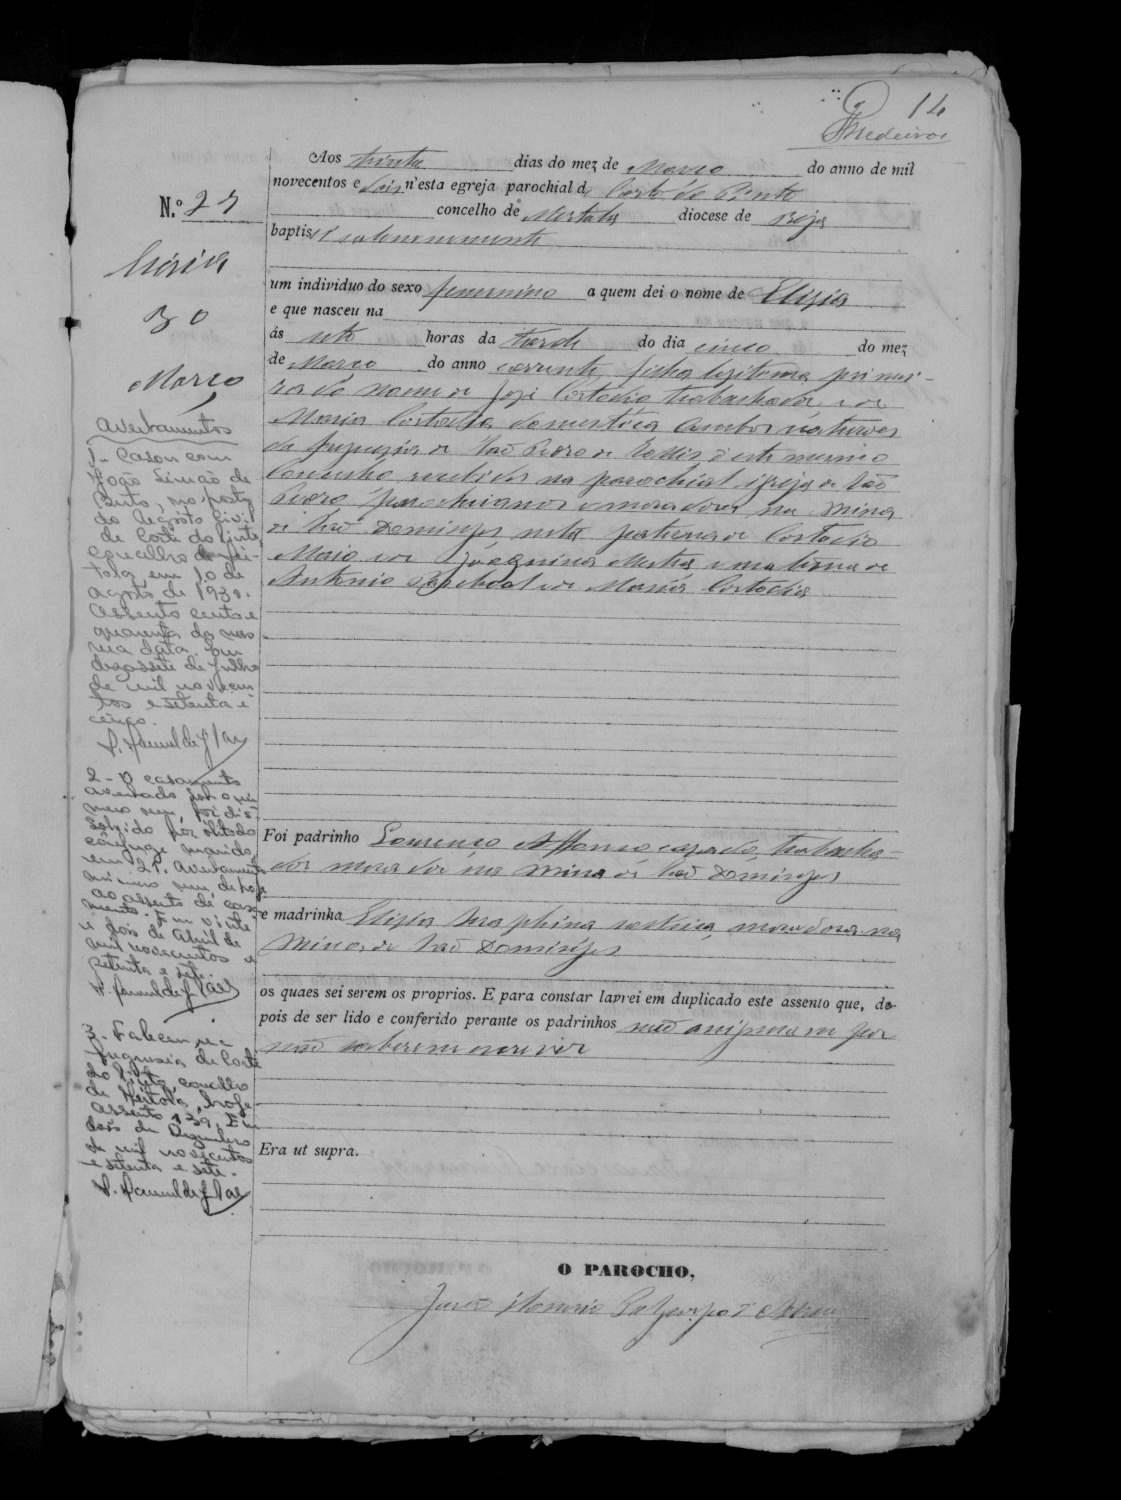 14
Medeiros
Aos trinta dias do mez de Março do anno de mil
novecentos e dois n'esta egreja parochial d Corte do Pinto
concelho de Mertola diocese de Beja
baptisei solemnemente
um individuo do sexo femenino a quem dei o nome de Elisia
e que nasceu na
ás sete horas da tarde do dia cinco do mez
de Março do anno corrente, filha legitima primei-
ra do nome de José Custodio trabalhador e de
Maria Custodia domestica ambos naturaes
da freguesia de São Pedro de Sollis d'este mesmo
Concelho recebidos na parochial igreja de São
Pedro parochianos e moradores na Mina
de São Domingos neta paterna de Custodio
Maio e de Joaquina Mestra e materna de
Antonio e de Maria Custodia
Foi padrinho Lourenço Affonso casado, trabalha-
dor morador na Mina de São Domingos
e madrinha Elisia Seraphina solteira, moradora na
Mina de São Domingos
os quaes sei serem os proprios. E para constar lavrei em duplicado este assento que, de-
pois de ser lido e conferido perante os padrinhos não assignaram por
não saberem escrever
Era ut supra.
O PAROCHO,
N.º 27
30
Março
Averbamentos
1- Casou com
João Simão de
Brito, no posto
do Registo Civil
de Corte do Pinto,
concelho de Mér-
tola, em 30 de
agosto de 1930.
Assento cento e
quarenta da mes
ma data. Em
dezassete de julho
de mil novecen
tos e setenta e
cinco.
2- O casamento
averbado sob o nú
mero um, foi dis
solvido por óbito do
cônjuge marido
em 21. Averbamento
número um, de hoje
ao assento de casa
mento. Em vinte
e dois de Abril de
mil novecentos e
setenta e sete.
3- Faleceu na
freguesia de Corte
do Pinto, concelho
de Mértola, hoje.
Assento 139. Em
dois de Dezembro
de mil novecentos
e setenta e sete.